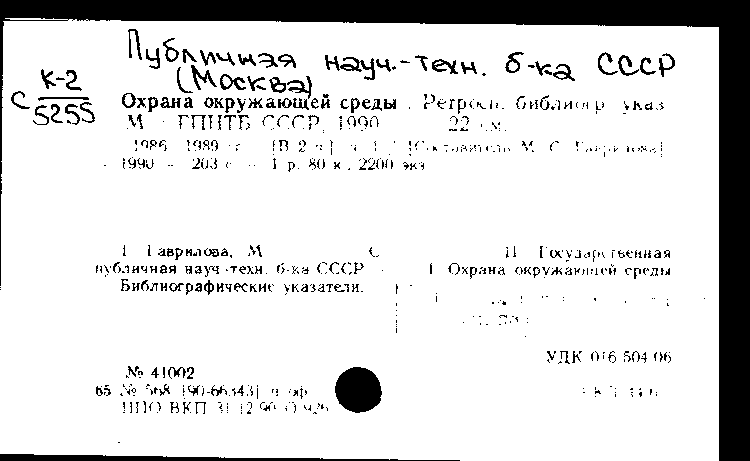 Публичная науч.-техн. б-ка СССР
(Москва)
К-2
С 5255
Охрана окружающей среды : Ретросп. библиогр. указ
М. : ГПНТБ СССР, 1990 22 см.
1986-1989 гг. [В 2 ч.] ч. 1 / [Составитель М. С. Гаврилова]
- 1990. - 203 с. - 1 р. 80 к., 2200 экз
I Гаврилова, М С II Государственная
публичная науч.-техн. б-ка СССР - 1 Охрана окружающей среды
Библиографические указатели.
УДК 016 504.06
№ 41002
65 № 568 [90-66343] п оф
НПО ВКП 31.12.90